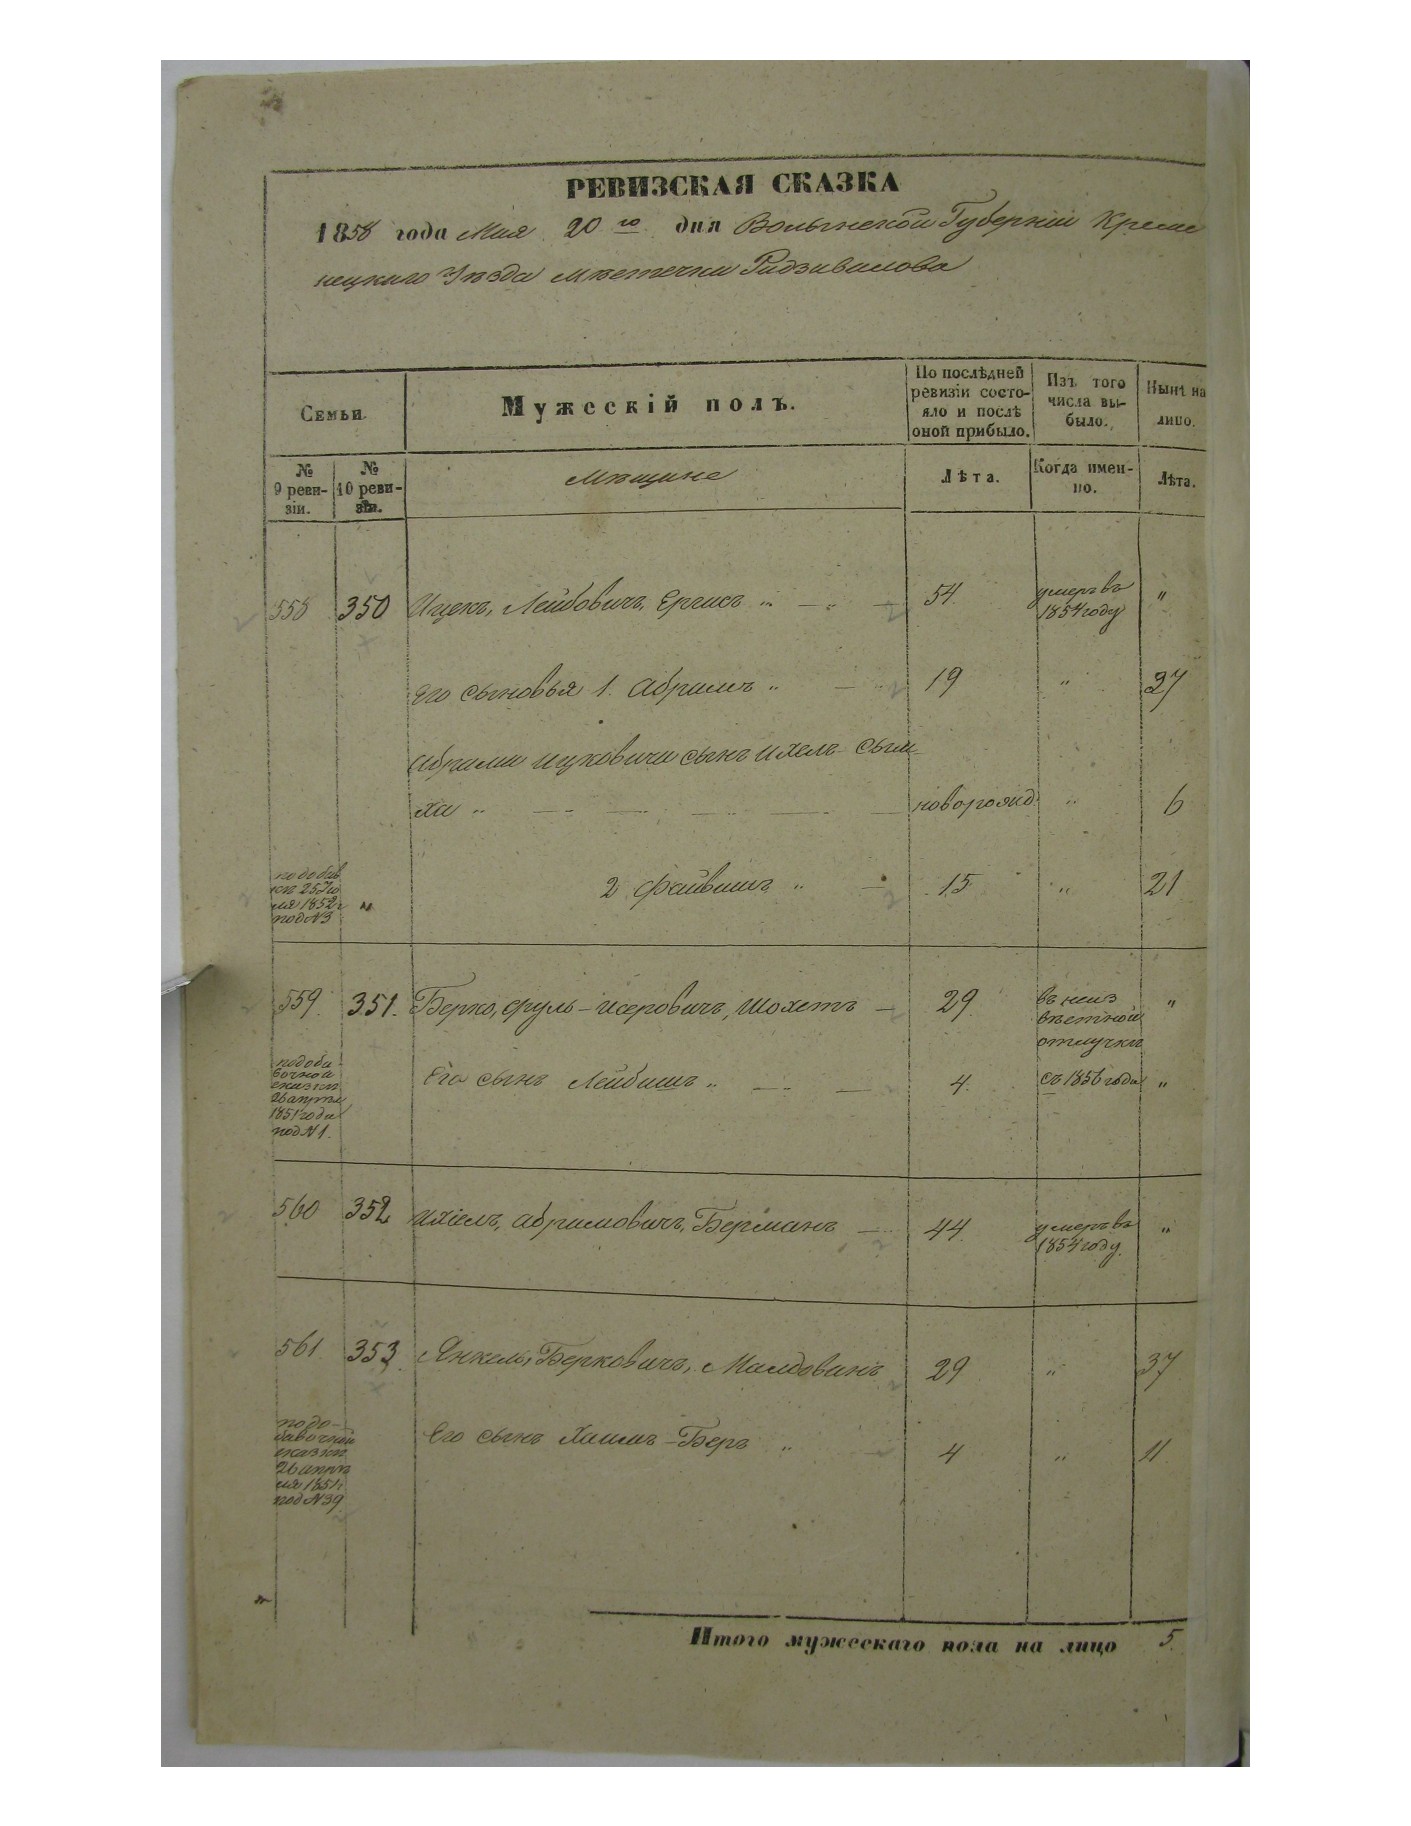 РЕВИЗСКАЯ СКАЗКА
1858 года Мая 20го дня Волынской Губерніи Креме
нецкаго Уѣзда мѣстечка Радзивилова
Семьи.
Мужескій полъ.
По послѣдней ревизіи состо-
яло и послѣ
оной прибыло.
Изъ того
числа вы-
было.
Нынѣ на
лицо.
№
9 реви-
зіи.
№
10 реви-
зіи.
Мѣщане
Лѣта.
Когда имен-
но.
Лѣта.
558 350 Ицекъ, Лейбовичъ, Ергисъ „ — „ — 54. умеръ въ
1854 году „
Его сыновья 1. Абрамъ „ — 19 „ 27
Абрама Ицковича сынъ Ихелъ Сим-
ха „ — — — — — новорожд. „ 6
подобав
1852 г
под №3 „ 2 Файвишъ „ — 15 „ 21
559. 351. Берко, Сруль-Исеровичъ, Шохетъ — 29. въ неиз
вѣстной
отлучки „
подоба-
вочной
сказки
26 апрѣля
1851 года
под №1.
Его сынъ Лейбишъ „ — — 4. съ 1856 года „
560 352 Ихіелъ, Абрамовичъ, Берманъ — 44. умеръ въ
1854 году. „
561. 353. Янкель, Берковичъ, Молдованъ 29 „ 37
подо-
бавочной
сказки
26 апрѣ
ля 1851 г
под №39
Его сынъ Хаимъ-Беръ „ — 4 „ 11.
Итого мужескаго пола на лицо 5.